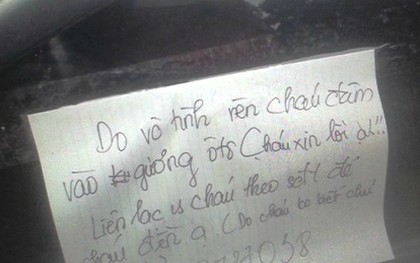 Do vô tình nên cháu đâm
vào gương ôtô (cháu xin lỗi ạ!!
Liên lạc vs cháu theo sđt để
cháu đền ạ (Do cháu ko biết chủ
37058